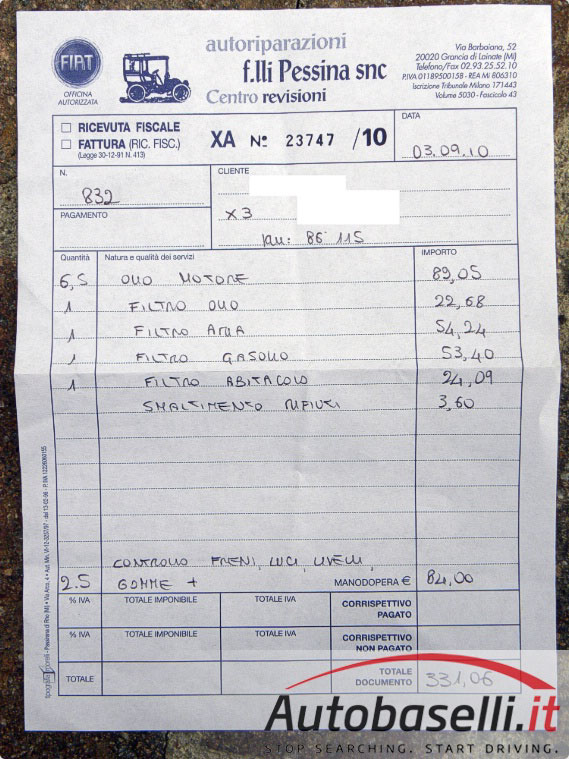 FIAT
OFFICINA
AUTORIZZATA
autoriparazioni
f.lli Pessina snc
Centro revisioni
Via Barbaiana, 52
20020 Grancia di Lainate (MI)
Telefono/Fax 02.93.25.52.10
P.IVA 01189500158 - REA MI 806310
Iscrizione Tribunale Milano 171443
Volume 5030 - Fascicolo 43
RICEVUTA FISCALE
FATTURA (RIC. FISC.)
(Legge 30-12-91 N. 413)
XA N° 23747 /10
DATA
03.09.10
N.
832
CLIENTE
X3
PAGAMENTO
km: 86 115
Quantità Natura e qualità dei servizi IMPORTO
6,5 OLIO MOTORE 89,05
1 FILTRO OLIO 22,68
1 FILTRO ARIA 54,24
1 FILTRO GASOLIO 53,40
1 FILTRO ABITACOLO 24,09
SMALTIMENTO RIFIUTI 3,60
CONTROLLO FRENI, LUCI, LIVELLI,
2.5 GOMME + MANODOPERA € 84,00
% IVA TOTALE IMPONIBILE TOTALE IVA CORRISPETTIVO
PAGATO
% IVA TOTALE IMPONIBILE TOTALE IVA CORRISPETTIVO
NON PAGATO
TOTALE TOTALE
DOCUMENTO 331,06
Autobaselli.it
STOP SEARCHING. START DRIVING.